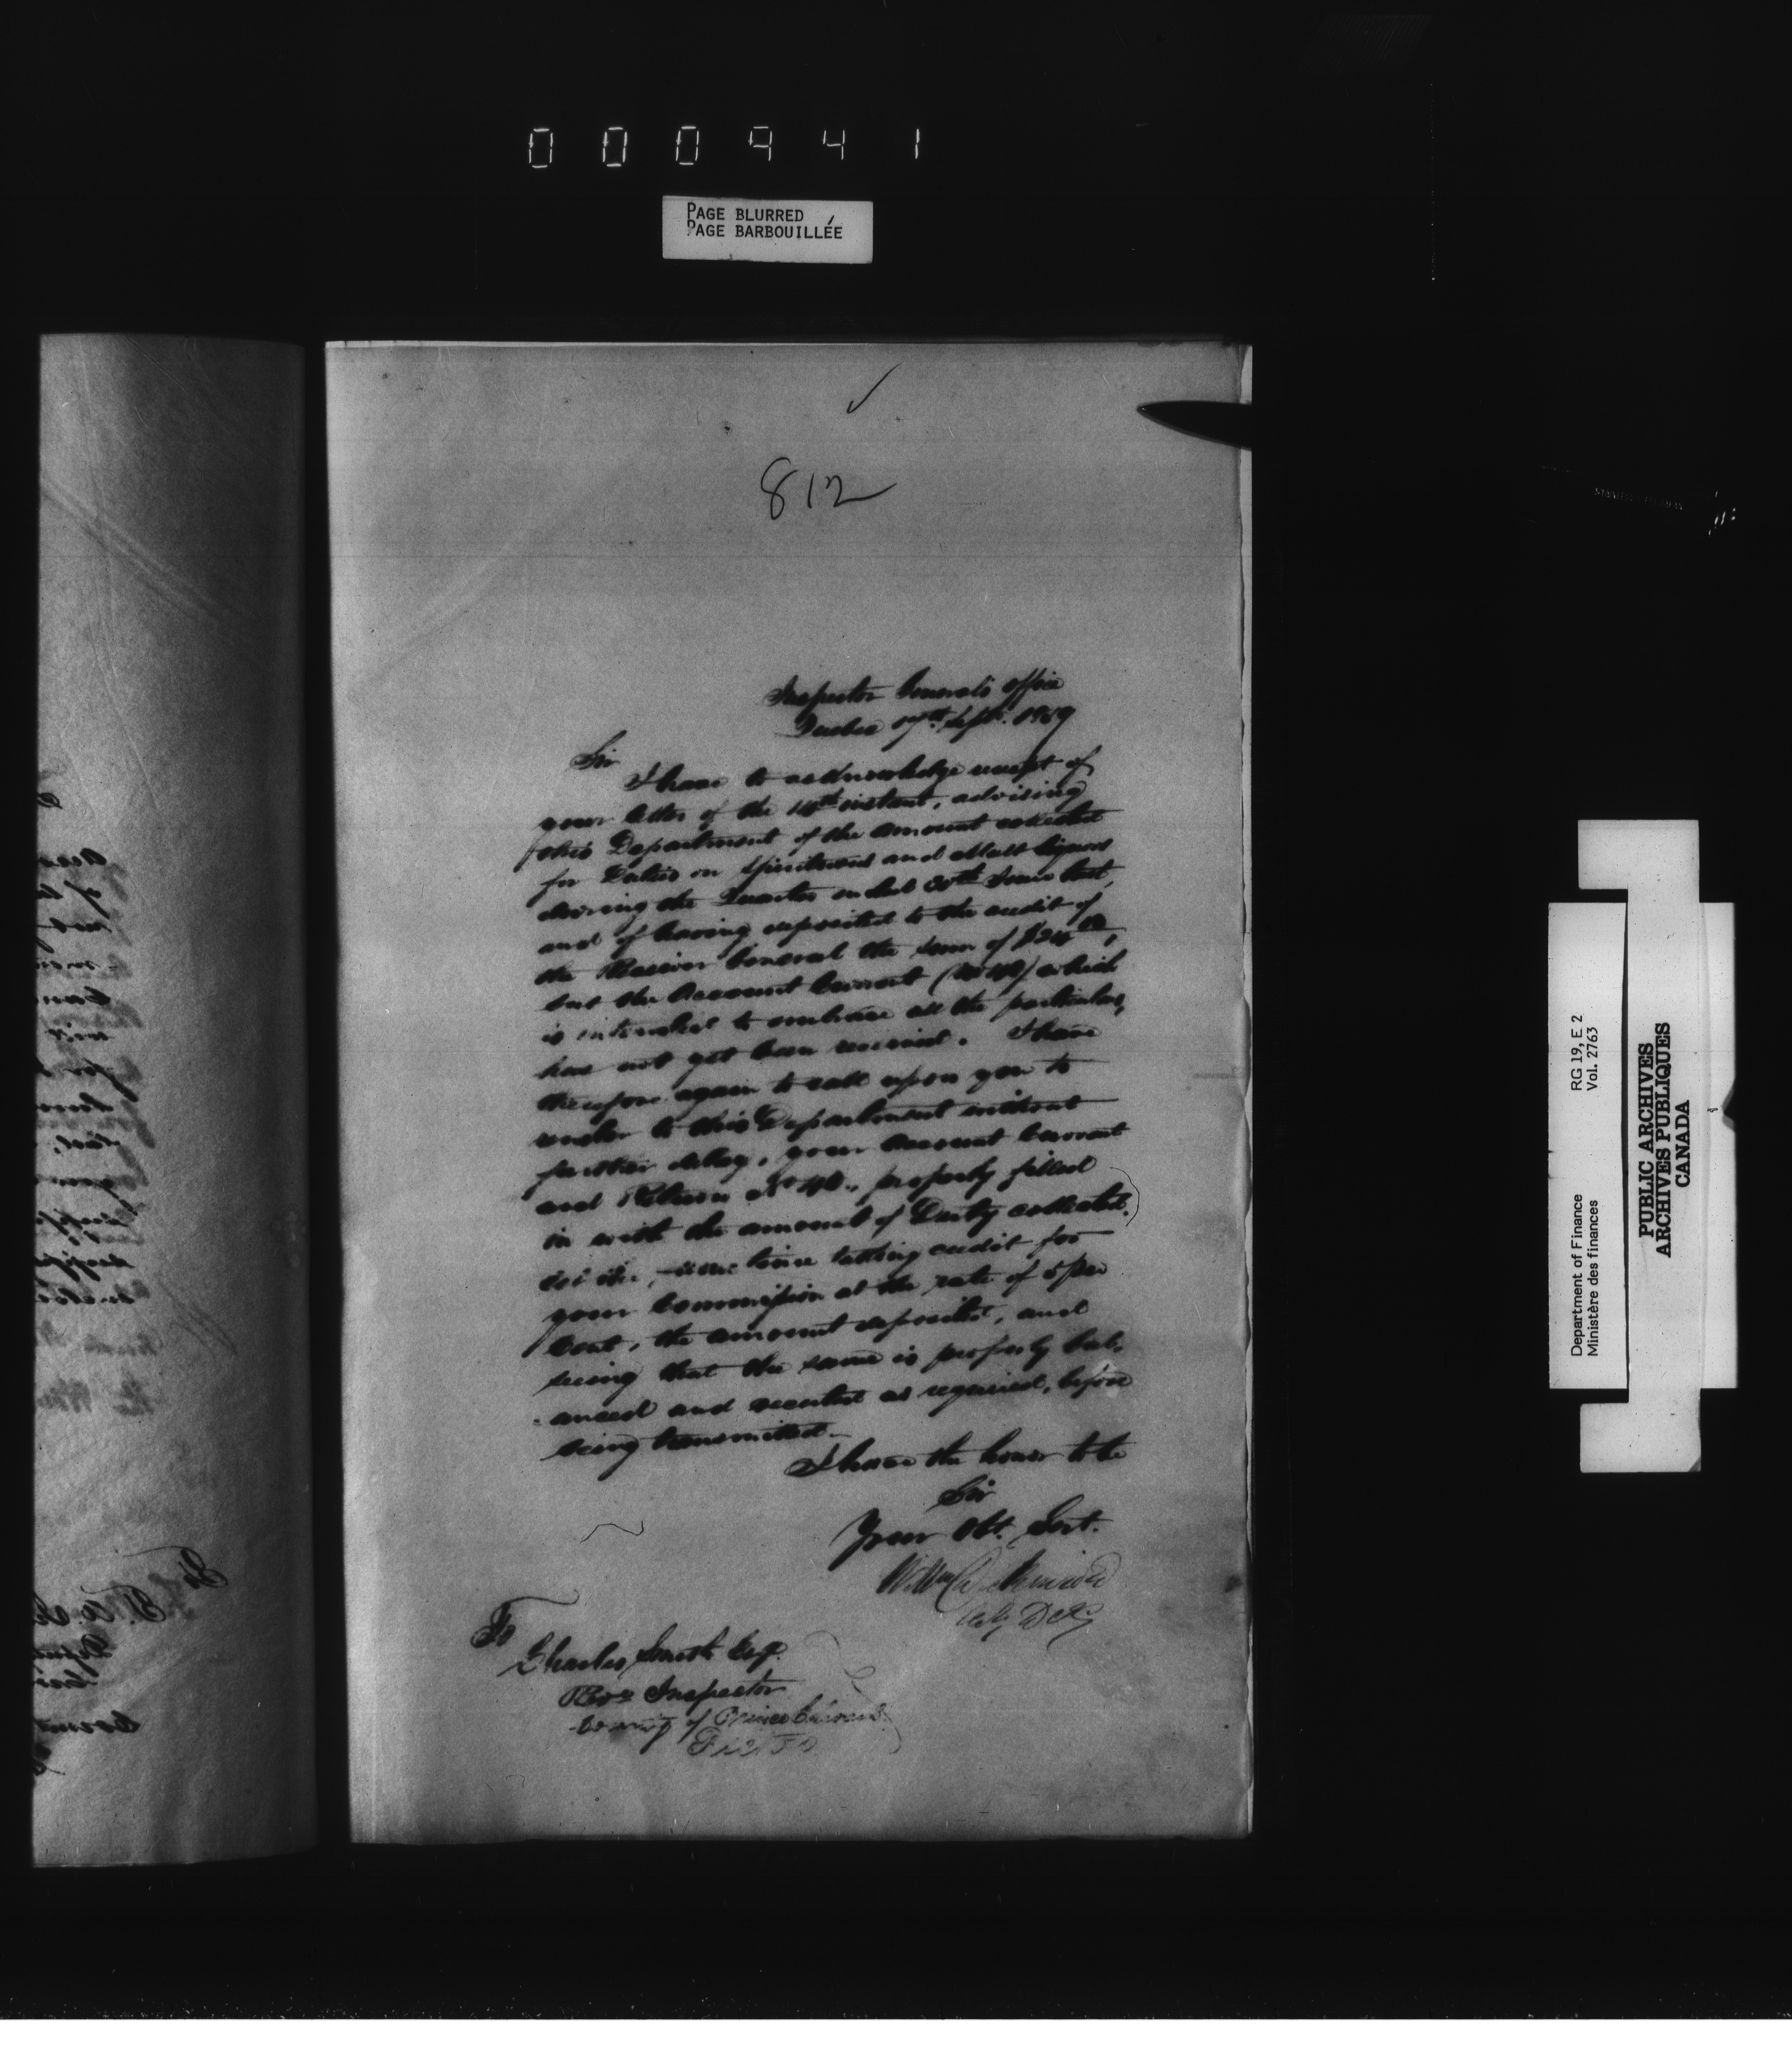 000941
PAGE BLURRED
PAGE BARBOUILLÉE
812
Inspector General's Office
Quebec 17th Sept. 1859
Sir
I have to acknowledge receipt of
your letter of the 14th instant, advising
this Department of the amount collected
for Duties on Spirituous and Malt liquors
during the Quarter ended 30th June last,
and of having deposited to the credit of
the Receiver General the sum of
but the Account Current which
is intended to embrace all the particulars,
has not yet been received. I have
therefore again to call upon you to
render to this Department without
further delay, your Account Current
and Return No properly filled
in with the amount of Duty collected,
taking credit for
your Commission at the rate of 5 per
Cent, the amount deposited, and
seeing that the same is properly bal-
anced and executed as required, before
being transmitted.
I have the honor to be
Sir
Your Obt. Servt.
To
Charles Smith Esq.
Revs Inspector
County of Prince Edward
Picton
Department of Finance RG 19, E 2
Ministère des finances Vol. 2763
PUBLIC ARCHIVES
ARCHIVES PUBLIQUES
CANADA